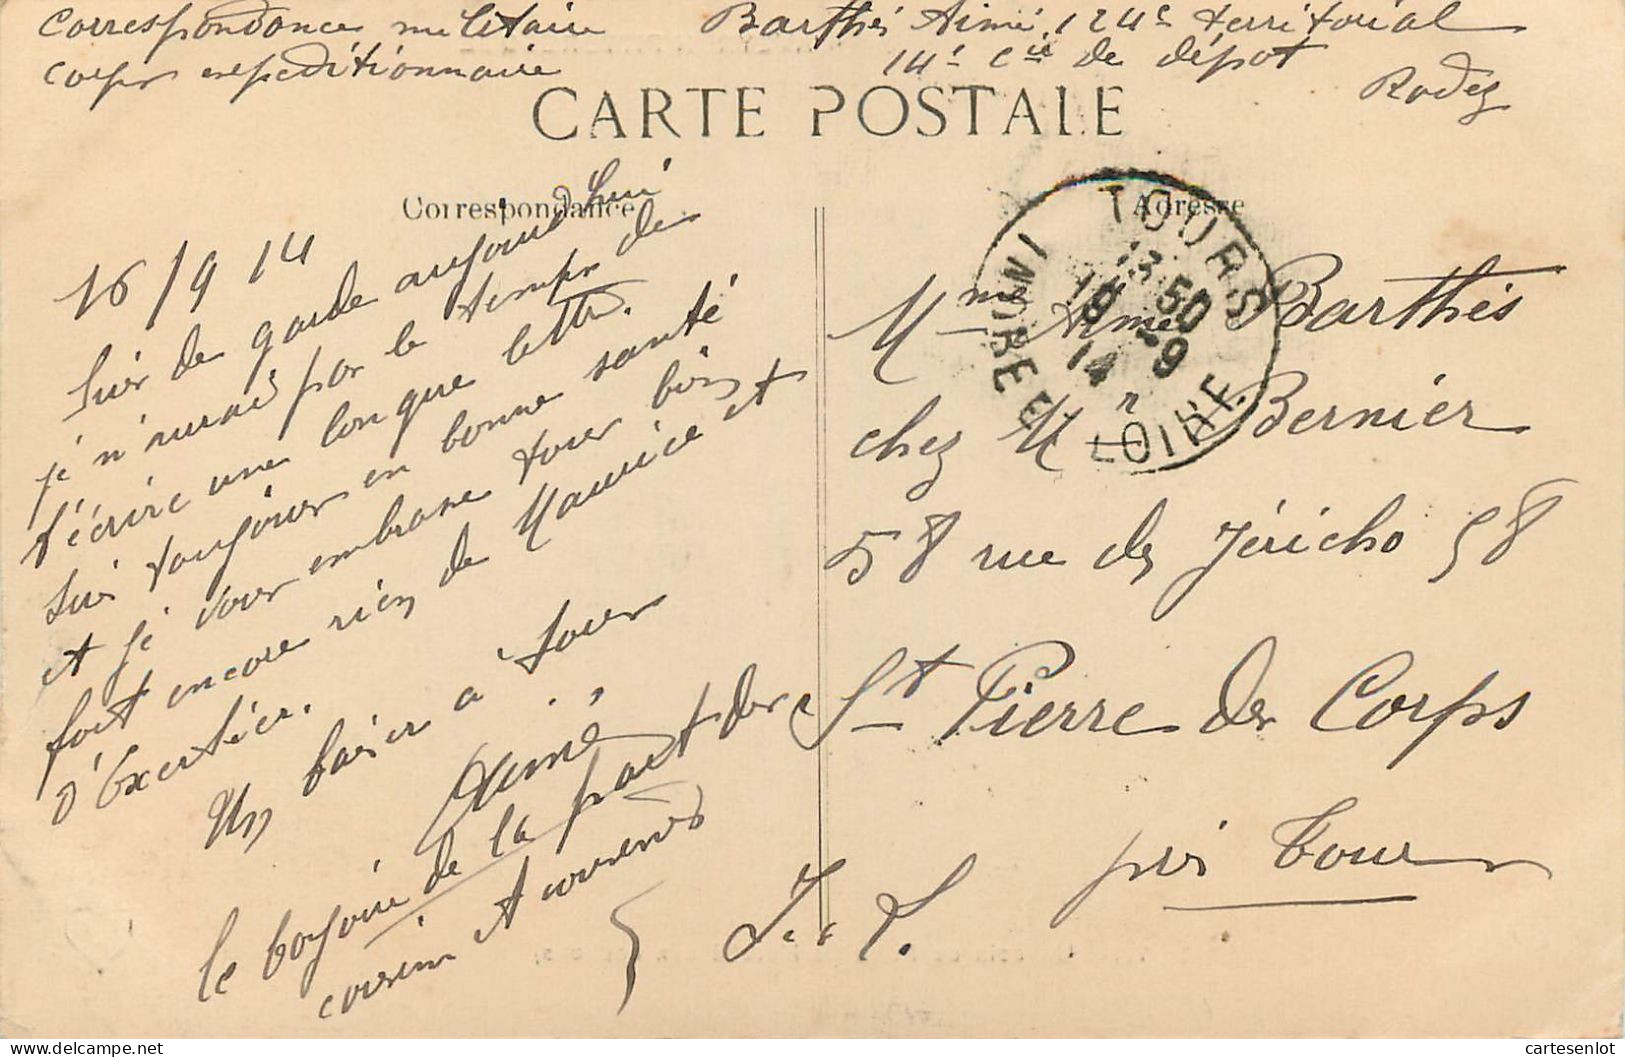 Correspondance militaire
corps expeditionnaire
Barthés Aimé 124e territorial
14e cie de dépot
Rodez
CARTE POSTALE
Correspondance
Adresse
16/9 14
Suis de garde aujourd'hui
je n'aurai pas le temps de
t'écrire une longue lettre.
Suis toujours en bonne santé
et je vous embrasse tous bien
fort encore rien de Maurice et
d'
Un baiser a tous
Aimé
le bonjour de la part des
cousins et
TOURS
13 50
19 - 9
14
INDRE ET LOIRE
Mme Aimé Barthés
chez Mr Bernier
58 rue de Jéricho 58
St Pierre des Corps
près Tours
I. L.
cartesenlot